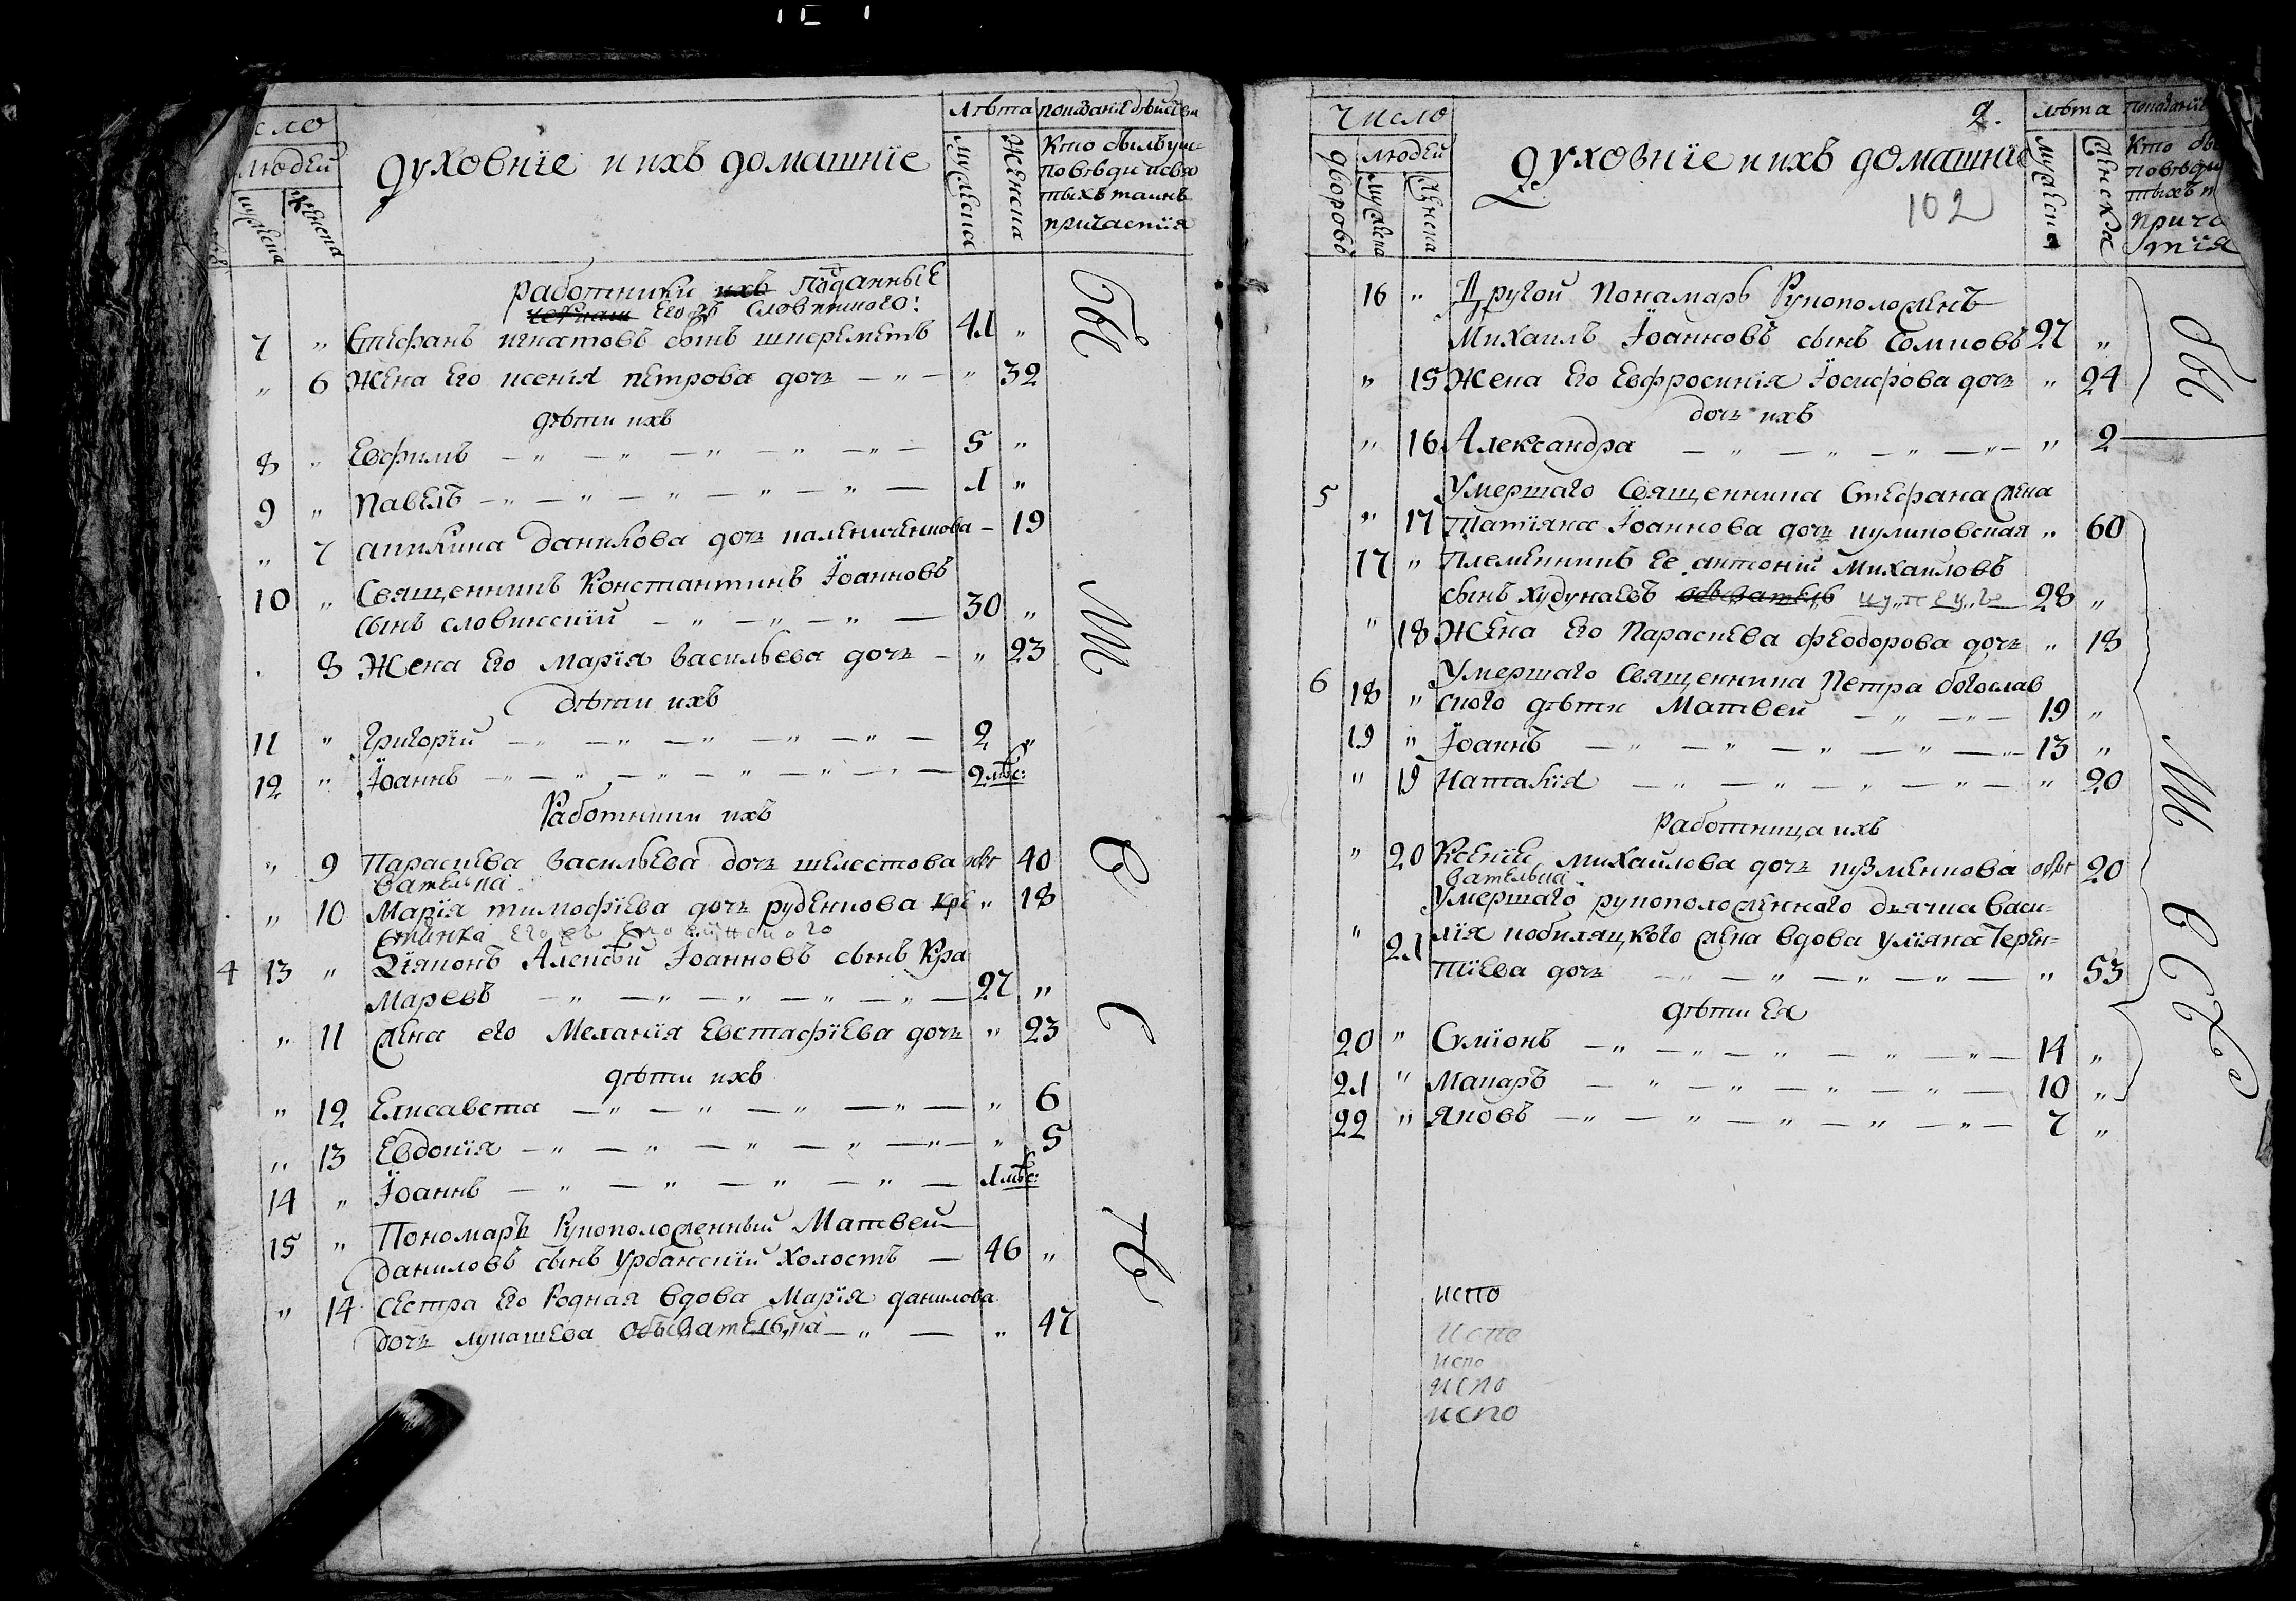 сло
людей
мужеска
женска
духовнїе и ихъ домашнїе
лѣта
мужеска
женска
показанїе дѣйств
Кто былъ у ис
повѣди и свя
тыхъ таинъ
причастїя
работники ихъ подданные
его Словинского:
7 „ Стефанъ игнатовъ сынъ шкереметъ 41 „
„ 6 Жена его ксенїя петрова дочь — „ — „ 32
дѣти ихъ
8 „ Евфимъ 5 „
9 „ Павелъ 1 „
„ 7 аникина данилова дочь палениченкова — 19
10 „ Священникъ Константинъ Їоанновъ
сынъ словинский 30 „
8 Жена его марїя васильева дочь — „ 23
дѣти ихъ
11 „ Григорїй 2 „
12 „ Їоаннъ 2 мѣс:
Работники ихъ
„ 9 Параскева васильева дочь шелестова обы 40
вателька
„ 10 Марїя тимофїева дочь руденкова кре „ 18
стянка его Словинского
4 13 „ Дїяконъ Алексѣй Їоанновъ сынъ Кра
маревъ 27 „
„ 11 жена его Меланїя Евстафїева дочь „ 23
дѣти ихъ
„ 12 Елисавета „ 6
„ 13 Евдокїя „ 5
14 „ Їоаннъ 1 мѣс:
15 „ Пономаръ Рукоположенный Матвей
даниловъ сынъ Урбанскїй холостъ — 46 „
„ 14 сестра его Родная вдова Марїя данилова
дочь лукашева обывателька — „ — „ 47
бы
ли
в
с
ѣ
число
дворовъ
людей
мужеска
женска
духовнїе и ихъ домашнїе
2.
102
лѣта
мужеска
женска
показанїе
Кто бы
повѣди
тыхъ т
прича
стїя
16 „ Другой Понамарь Рукоположенъ
Михаилъ Їоанновъ сынъ Сомковъ 27 „
„ 15 Жена его Евфросинїя Їосифова дочь „ 24
дочь ихъ
„ 16 Александра „ 2
5 Умершаго Священника Стефана жена
„ 17 Татїяна Їоаннова дочь куликовская „ 60
17 „ Племянникъ ее антоній Михаиловъ
сынъ худукаевъ обыватель купецъ 28 „
„ 18 Жена его Параскева феодорова дочь „ 18
6 Умершаго Священника Петра богослав
18 „ ского дѣти Матвей 19 „
19 „ Їоаннъ 13 „
„ 19 Наталїя „ 20
Работница ихъ
„ 20 Ксенїя михайлова дочь кузменкова обы 20
вателька
Умершаго рукоположенного дьячка Васи-
„ 21 лїя кобиляцкого жена вдова Улїяна Терен-
тїева дочь „ 53
дѣти ея
20 „ Симїонъ 14 „
21 „ Макаръ 10 „
22 „ Яковъ 7 „
бы
ли
всѣ
испо
испо
испо
испо
испо